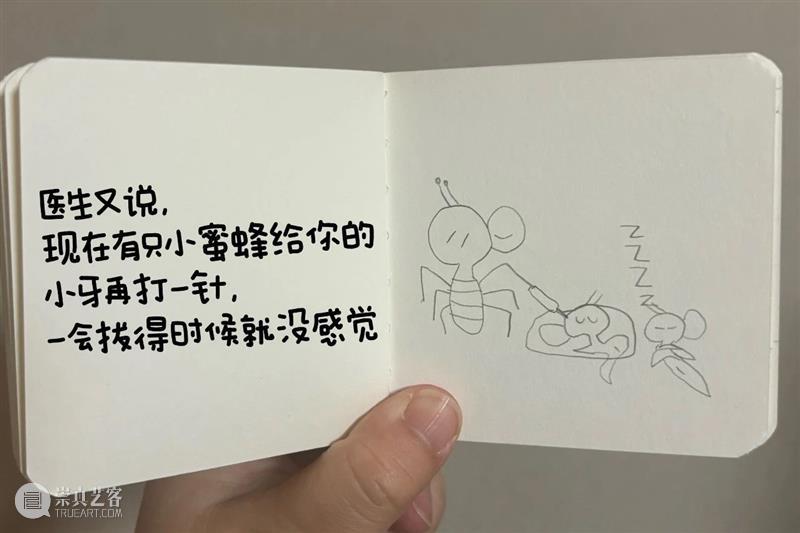 医生又说,
现在有只小蜜蜂给你的
小牙再打一针,
一会拔得时候就没感觉
Z
Z
Z
Z
崇真艺客
TRUEART.COM